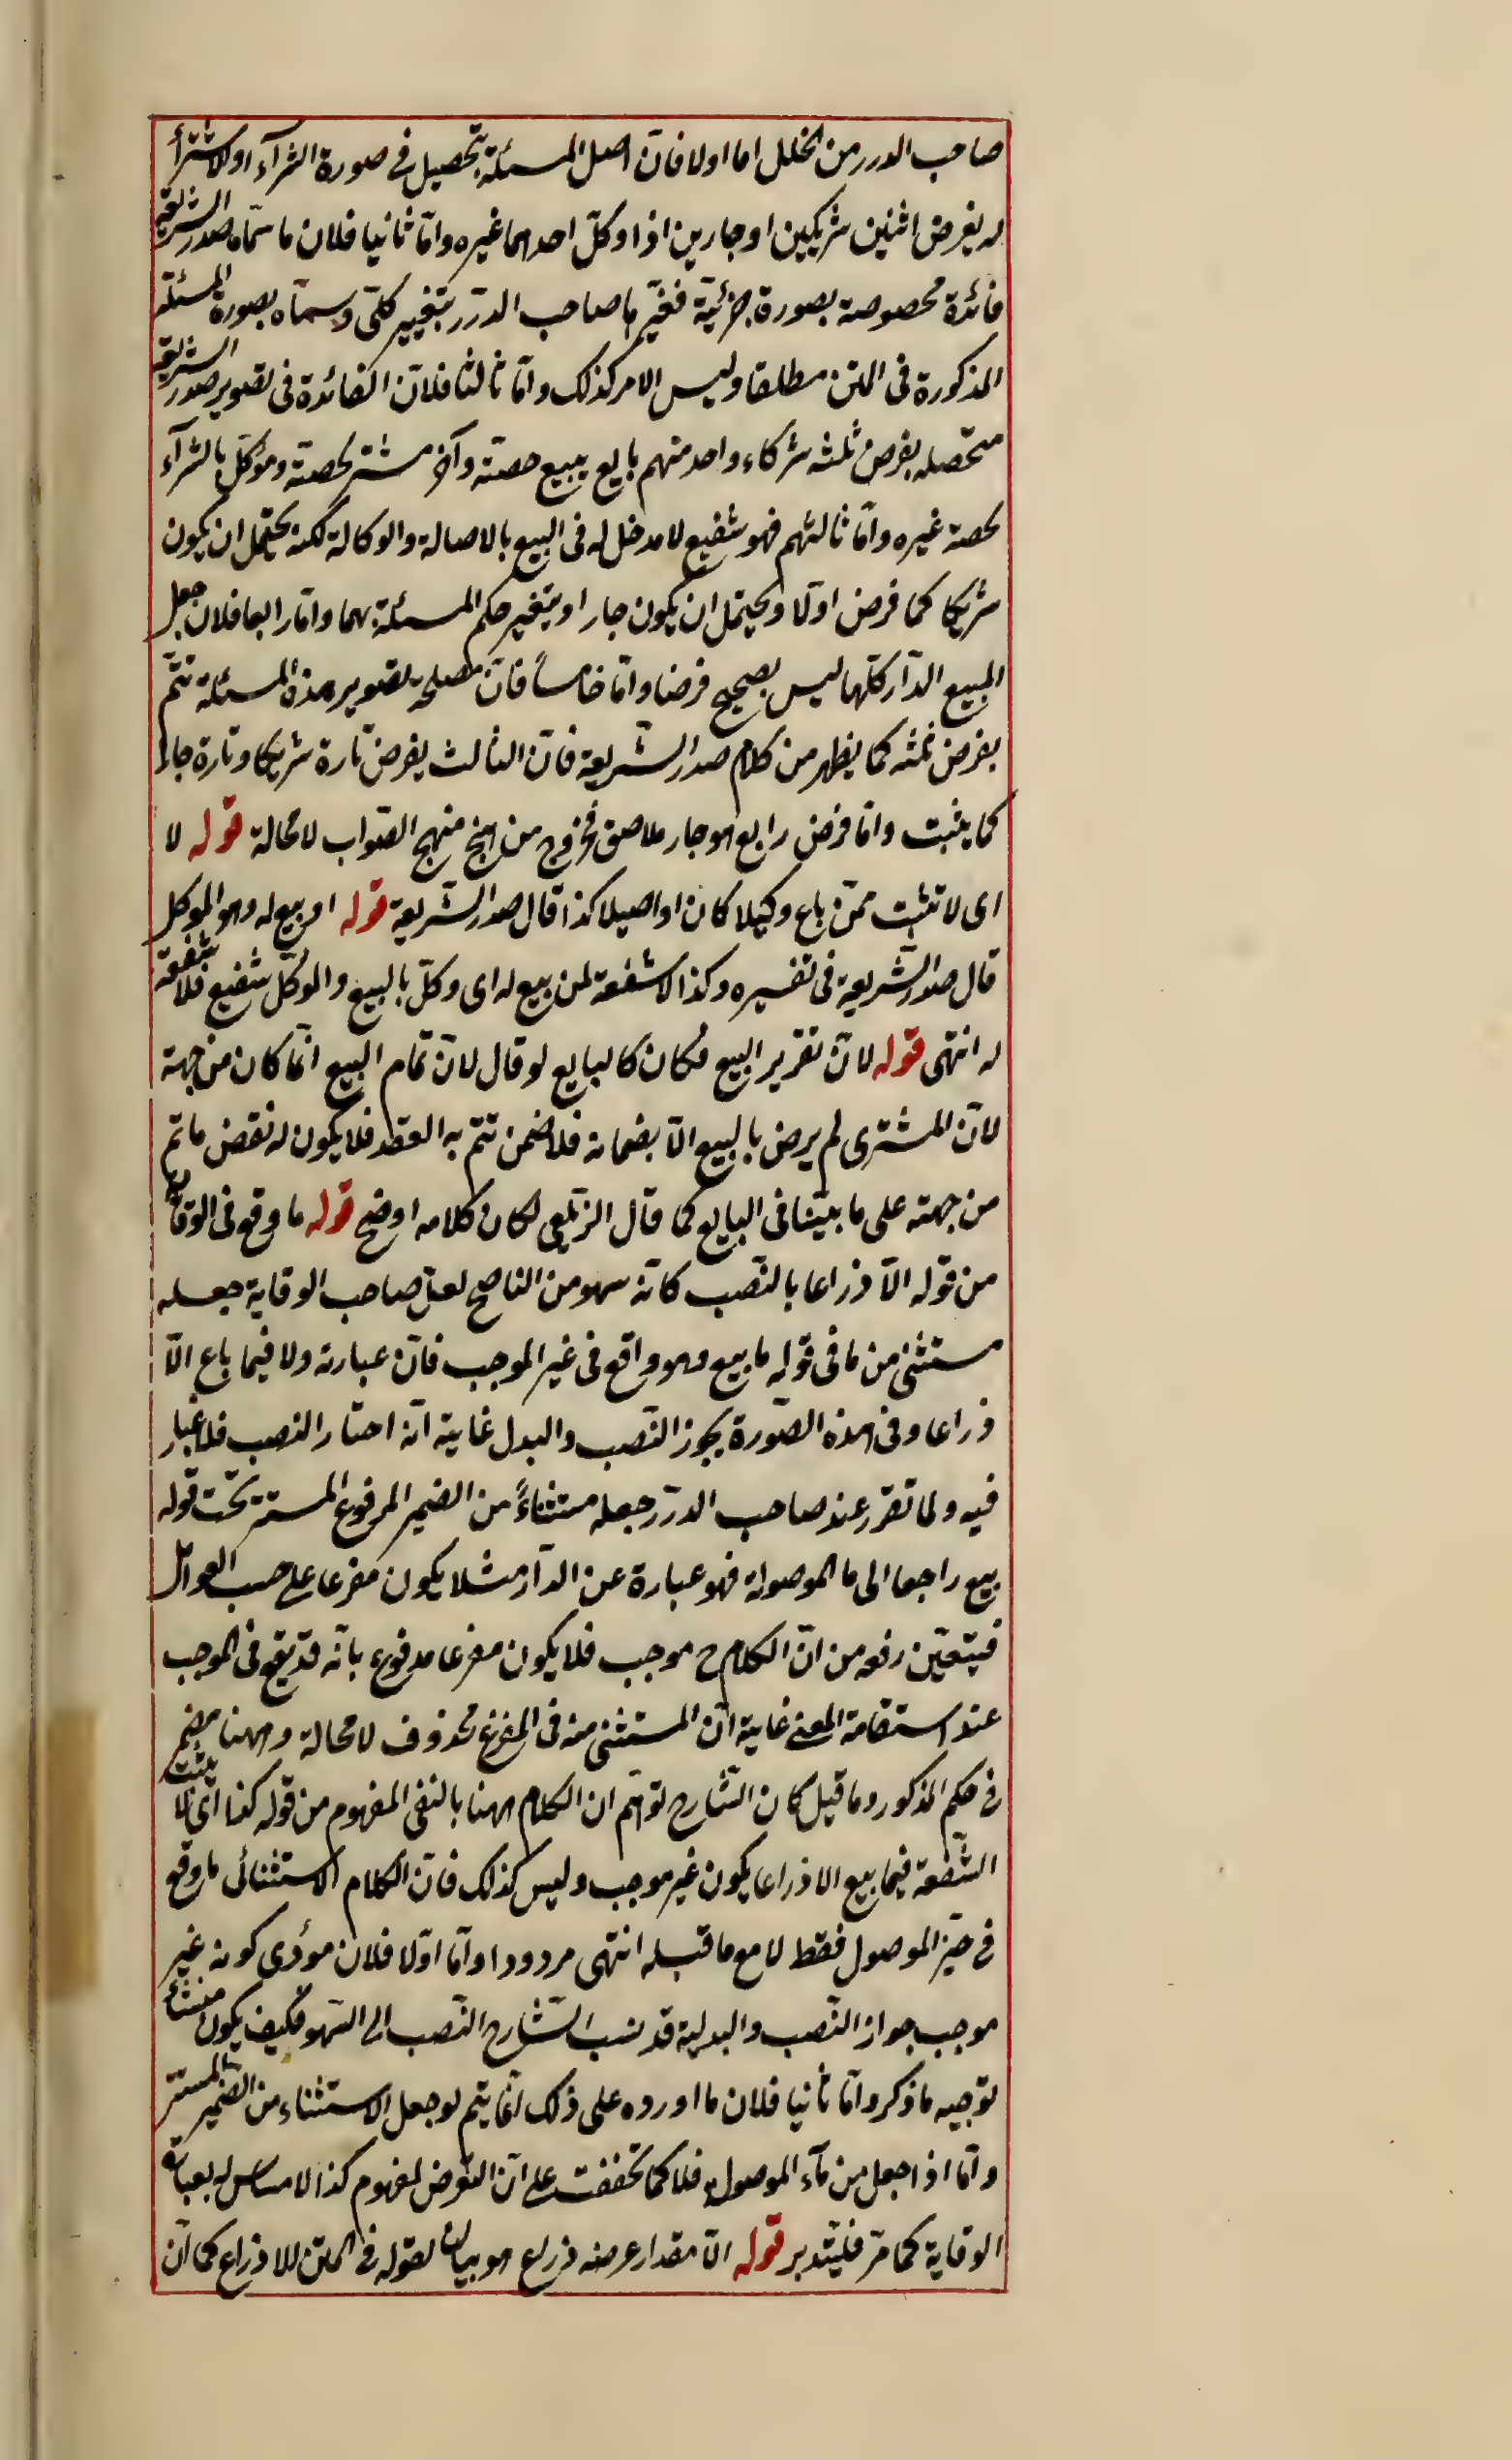 صاحب الدرر من الخلل اما اولا فان اصل المسئلة بتحصيل فى صورة الشرآء او لاشترا
له بفرض اثنين شريكين او جارين اذا وكّل احدهما غيره وامّا ثانيا فلان ما سمّاه صدر الشريعة
فائدة مخصوصة بصورة جزئيّة فغيّرها صاحب الدرّر بتغيير كلّى وسمّاه بصورة المسئلة
المذكورة فى المتن مطلقا وليس الامر كذلك وامّا ثالثا فلانّ الفائدة فى تصوير صدر الشريعة
متحصله بفرض ثلثه شركاء واحد منهم بايع يبيع حصته وآخر مشتر لحصته وموكّل بالشرآء
لحصة غيره وامّا ثالثهم فهو شفيع لا مدخل له فى البيع بالاصالة والوكالة لكنه يحتمل ان يكون
شريكا كما فرض اوّلا ويحتمل ان يكون جارا ويتغير حكم المسئلة بهما وامّا رابعا فلان جعل
المبيع الدّار كلّها ليس بصحيح فرضا وامّا خامساً فانّ مصلحة تصوير هذه المسئلة تتمّ
بفرض ثلثه كما يظهر من كلام صدر الشّريعة فانّ الثالث يفرض تارة شريكا وتارة جارا
كما يثبت وامّا فرض رابع هو جار ملاصق فخروج من نهج منهج الصّواب لا محالة قوله لا
اى لا تثبت ممّن باع وكيلا كان او اصيلا كذا قال صدر الشّريعة قوله او بيع له وهو الموكل
قال صدر الشّريعة فى تفسيره وكذا لا شفعة لمن بيع له اى وكّل بالبيع والموكّل شفيع فلا شفعة
له انتهى قوله لانّ تقرير البيع فكان كالبايع لو قال لانّ تمام البيع انّما كان من جهته
لانّ المشترى لم يرض بالبيع الّا بضمانه فلا ضمن تتمّ به العقد فلا يكون له نقض ما تم
من جهته على ما بيّنا فى البايع كما قال الزيلعى لكان كلامه اوضح قوله ما وقع فى الوقاية
من قوله الّا ذراعا بالنّصب كانّه سهو من الناصح لعل صاحب الوقاية جعله
مستثنى من ما فى قوله ما بيع وهو واقع فى غير الموجب فانّ عبارته ولا فيما باع الّا
ذراعا وفى هذه الصّورة يجوز النّصب والبدل غايته انّه اختار النصب فلا غبار
فيه ولما تقرّر عند صاحب الدرّر جعله مستثناءً من الضمير المرفوع المستتر تحت قوله
بيع راجعا الى ما الموصولة فهو عبارة عن الدّار مثلا يكون مفرعا على حسب العوامل
فيتعيّن رفعه من انّ الكلام ح موجب فلا يكون مفرعا مدفوع بانّه قد يقع فى الموجب
عند استقامة المعنى غايته انّ المستثنى منه فى المفرغ محذوف لا محالة وههنا مضمر
فى حكم المذكور وما قيل كان الشّارح توهّم ان الكلام ههنا بالنفى المفهوم من قوله كذا اى لا يثبت
الشّفعة فيما بيع الا ذراعا يكون غير موجب وليس كذلك فانّ الكلام الاستثنائى ما وقع
فى حيّز الموصول فقط لا مع ما قبله انتهى مردود اوامّا اوّلا فلان مؤدى كونه غير
موجب جواز النّصب والبدلية قد نسب الشّارح النّصب الى السّهو فكيف يكون منشأ
توجيه ما ذكر وامّا ثانيا فلان ما اورده على ذلك انّما يتم لو جعل الاستثناء من الضمير المستتر
وامّا اذا جعل من مآء الموصولة فلا كما تحققت على انّ التعرض لمفهوم كذا لا مساس له بعبارة
الوقاية كما مرّ فليتدبر قوله الّا مقدار عرضه ذراع هو بيان لقوله فى المتن الا ذراع كما انّ